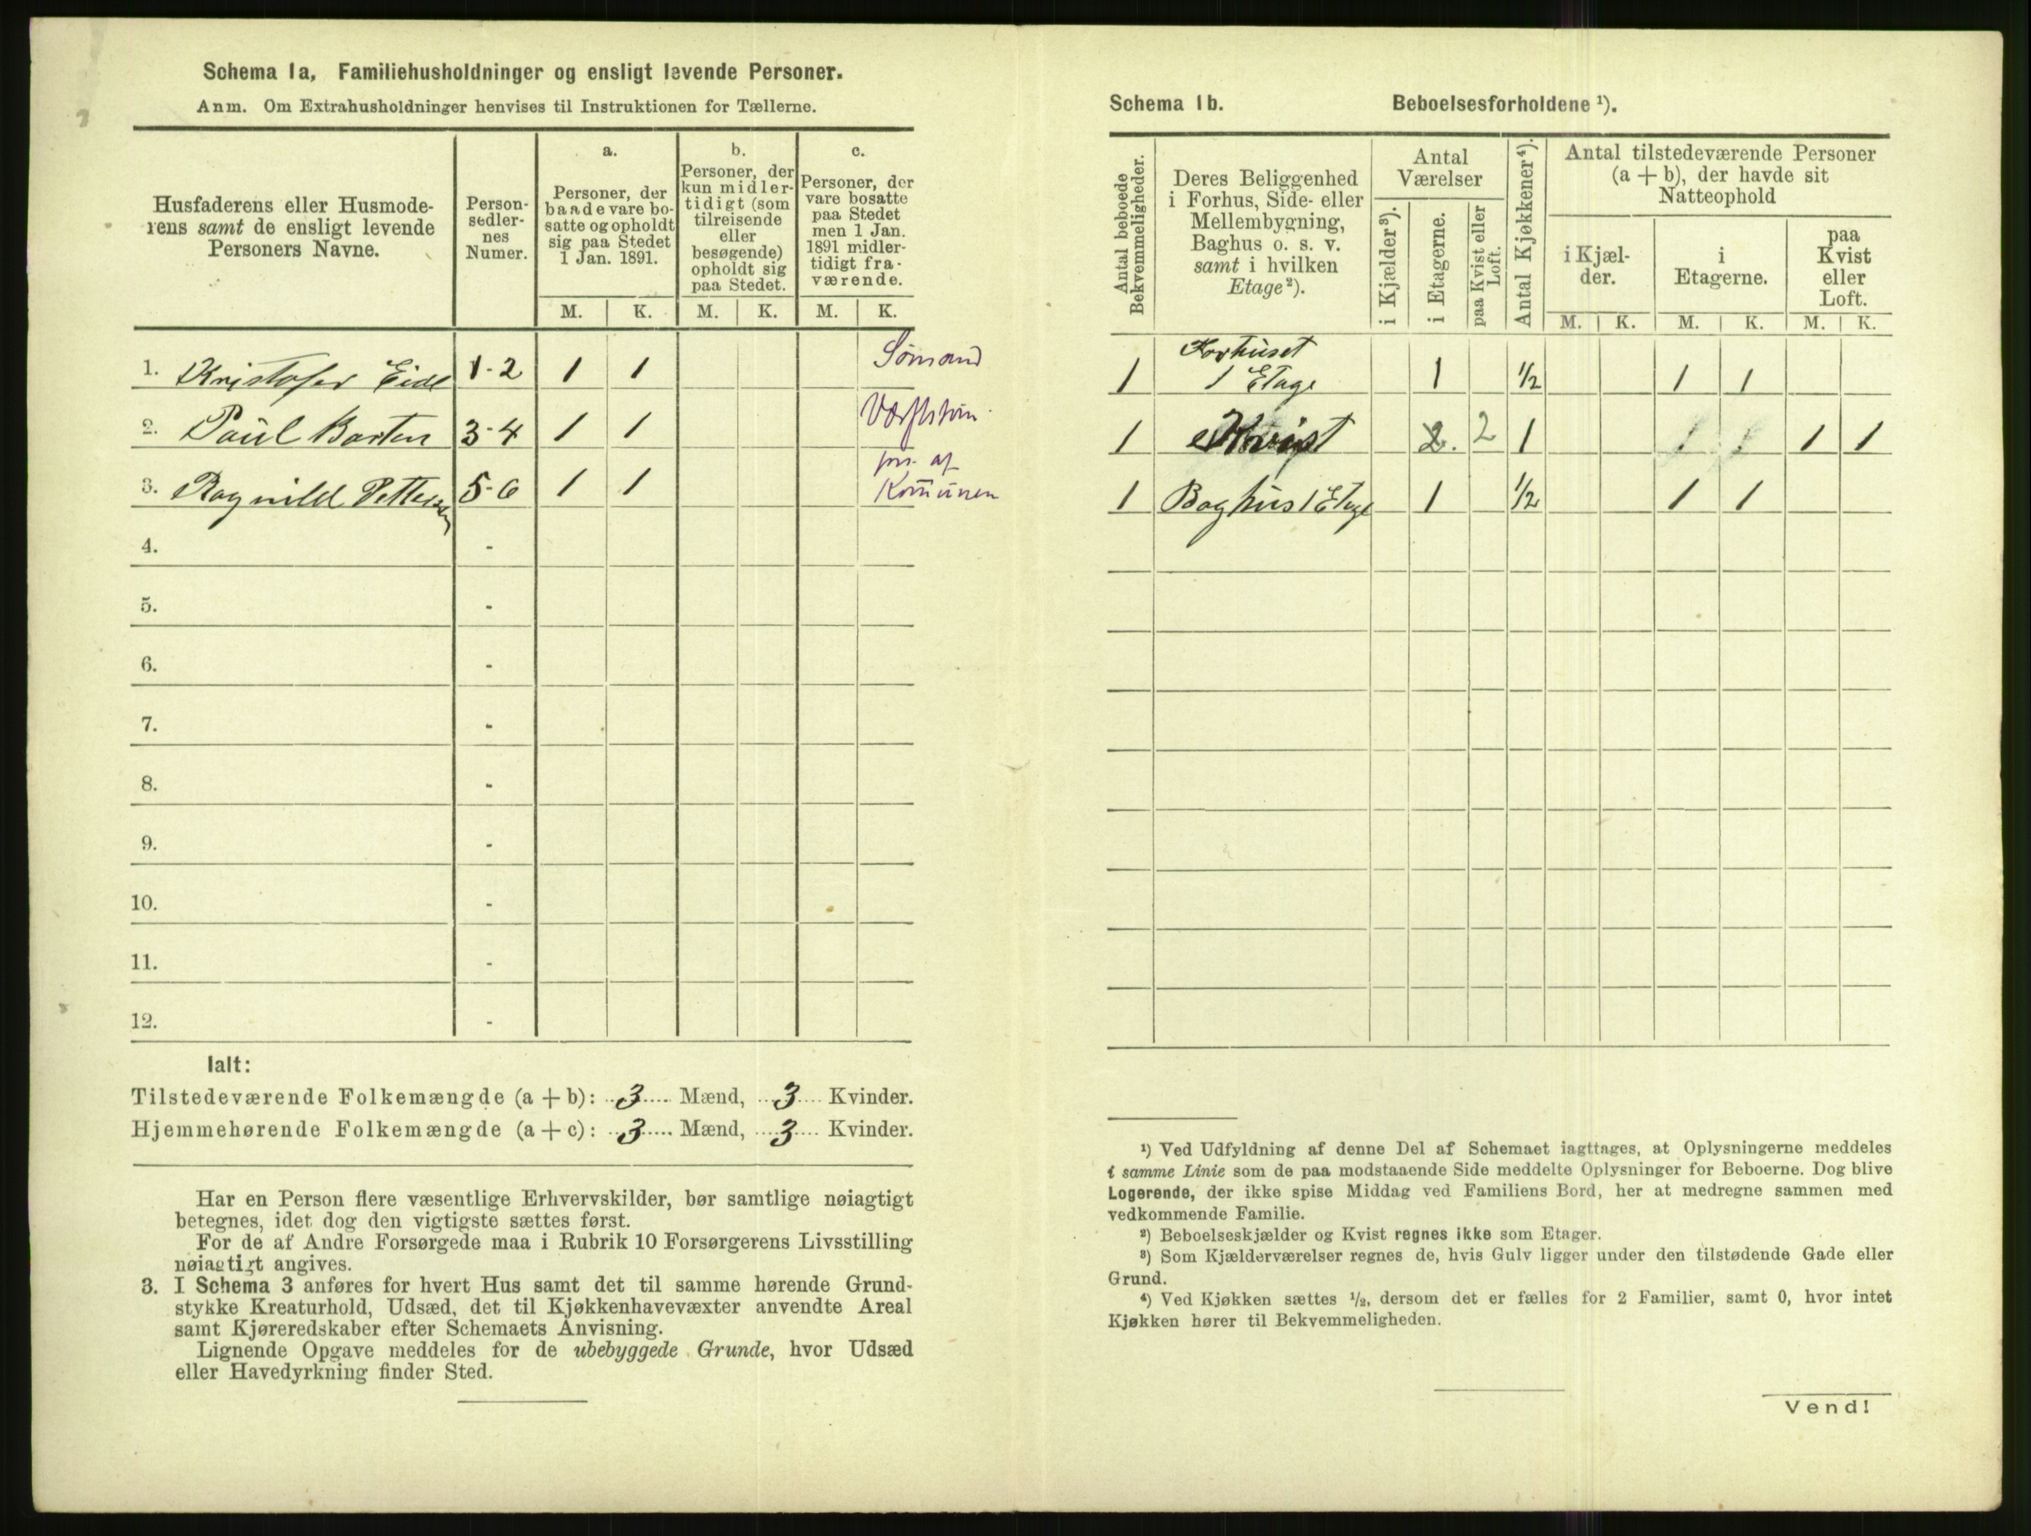 Schema 1a, Familiehusholdninger og ensligt levende Personer.
Anm. Om Extrahusholdninger henvises til Instruktionen for Tællerne.
Husfaderens eller Husmode-
rens samt de ensligt levende
Personers Navne.
Person-
sedler-
nes
Numer.
a.
Personer, der
baade vare bo-
satte og opholdt
sig paa Stedet
1 Jan. 1891.
b.
Personer, der
kun midler-
tidigt (som
tilreisende
eller
besøgende)
opholdt sig
paa Stedet.
c.
Personer, der
vare bosatte
paa Stedet
men 1 Jan.
1891 midler-
tidigt fra-
værende.
M. K. M. K. M. K.
1. Kristofer Eide 1-2 1 1 Sömand
2. Paul Barten 3-4 1 1
3. Ragnild Pettersen 5-6 1 1 fors. af
Kommunen
4. -
5. -
6. -
7. -
8. -
9. -
10. -
11. -
12. -
Ialt:
Tilstedeværende Folkemængde (a + b): 3 Mænd, 3 Kvinder.
Hjemmehørende Folkemængde (a + c): 3 Mænd, 3 Kvinder.
Har en Person flere væsentlige Erhvervskilder, bør samtlige nøiagtigt
betegnes, idet dog den vigtigste sættes først.
For de af Andre Forsørgede maa i Rubrik 10 Forsørgerens Livsstilling
nøiagtigt angives.
3. I Schema 3 anføres for hvert Hus samt det til samme hørende Grund-
stykke Kreaturhold, Udsæd, det til Kjøkkenhavevæxter anvendte Areal
samt Kjøreredskaber efter Schemaets Anvisning.
Lignende Opgave meddeles for de ubebyggede Grunde, hvor Udsæd
eller Havedyrkning finder Sted.
Schema 1b. Beboelsesforholdene ¹).
Antal beboede
Bekvemmeligheder.
Deres Beliggenhed
i Forhus, Side- eller
Mellembygning,
Baghus o. s. v.
samt i hvilken
Etage²).
Antal
Værelser
i Kjælder³).
i Etagerne.
paa Kvist eller
Loft.
Antal Kjøkkener⁴).
Antal tilstedeværende Personer
(a + b), der havde sit
Natteophold
i Kjæl-
der.
i
Etagerne.
paa
Kvist
eller
Loft.
M. K. M. K. M. K.
1 Forhuset
1 Etage 1 1/2 1 1
1 Kvist 2. 2 1 1 1 1 1
1 Baghus 1 Etage 1 1/2 1 1
¹) Ved Udfyldning af denne Del af Schemaet iagttages, at Oplysningerne meddeles
i samme Linie som de paa modstaaende Side meddelte Oplysninger for Beboerne. Dog blive
Logerende, der ikke spise Middag ved Familiens Bord, her at medregne sammen med
vedkommende Familie.
²) Beboelseskjælder og Kvist regnes ikke som Etager.
³) Som Kjælderværelser regnes de, hvis Gulv ligger under den tilstødende Gade eller
Grund.
⁴) Ved Kjøkken sættes 1/2, dersom det er fælles for 2 Familier, samt 0, hvor intet
Kjøkken hører til Bekvemmeligheden.
Vend!